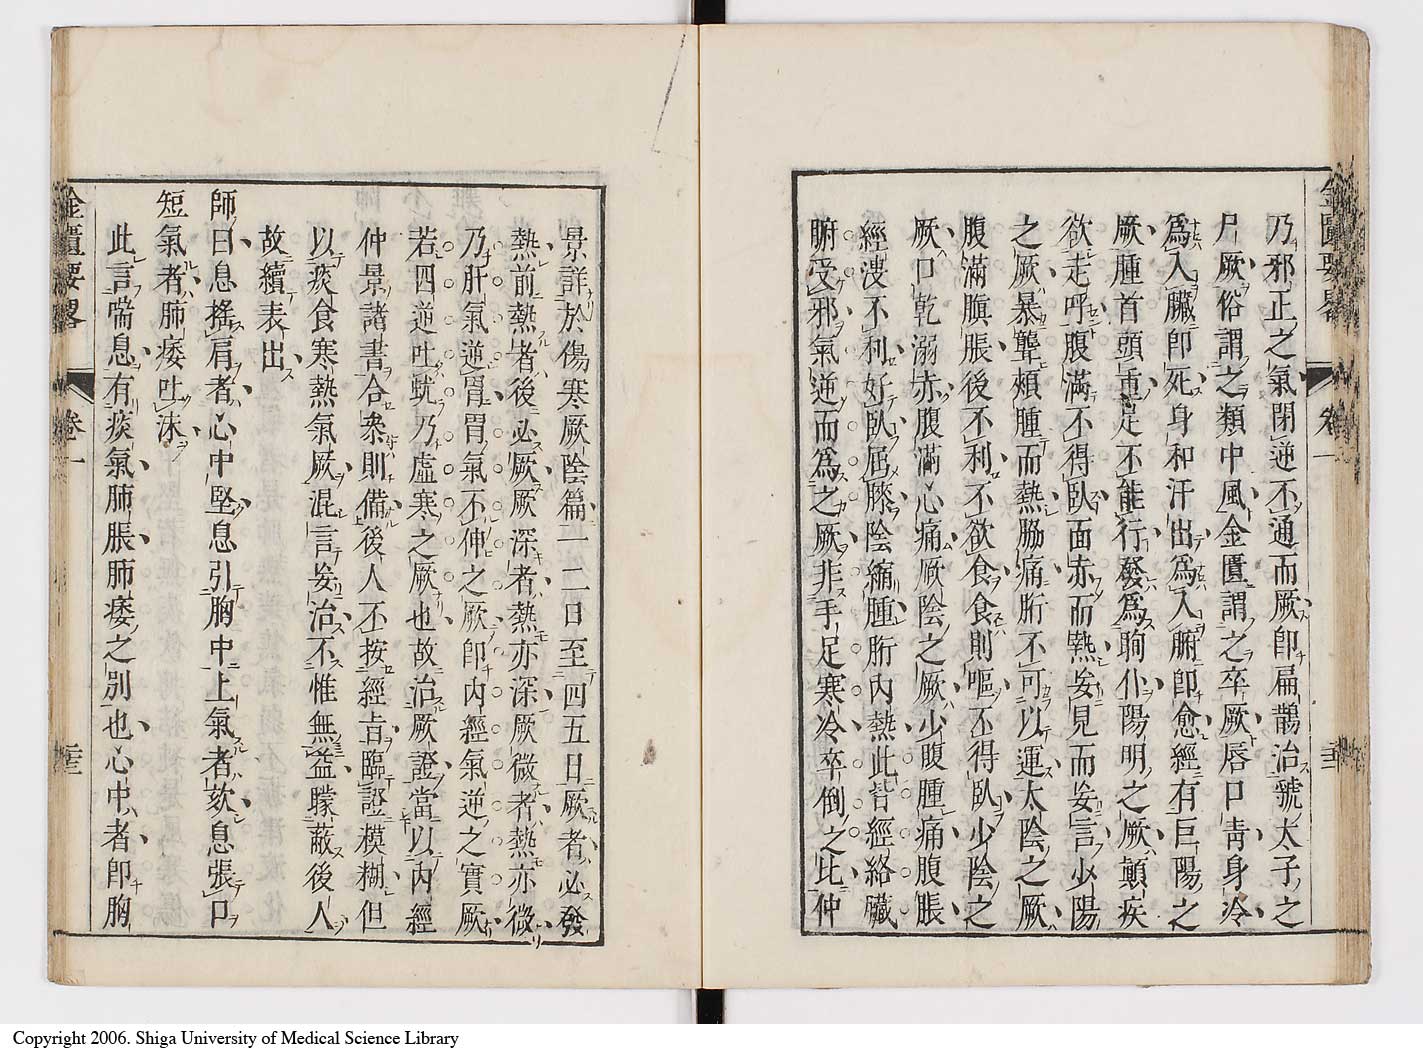 乃邪正之氣閉逆不通而厥卽扁鵲治虢太子之
尸厥俗謂之類中風金匱謂之卒厥唇口靑身冷
爲入臟卽死身和汗出爲入腑卽愈經有巨陽之
厥腫首頭重足不能行發爲眴仆陽明之厥顚疾
欲走呼腹滿不得臥面赤而熱妄見而妄言少陽
之厥暴聾頰腫而熱脇痛䯒不可以運太陰之厥
腹滿䐜脹後不利不欲食食則嘔不得臥少陰之
厥口乾溺赤腹滿心痛厥陰之厥少腹腫痛腹脹
經溲不利好臥屈膝陰縮腫䯒內熱此皆經絡臟
腑受邪氣逆而爲之厥非手足寒冷卒倒之比仲
景詳於傷寒厥陰篇一二日至四五日厥者必發
熱前熱者後必厥厥深者熱亦深厥微者熱亦微
乃肝氣逆胃胃氣不伸之厥卽內經氣逆之實厥
若四逆吐蚘乃虛寒之厥也故治厥證當以內經
仲景諸書合叅則備後人不按經旨臨證模糊但
以痰食寒熱氣厥混言妄治不惟無益矇蔽後人
故續表出
師曰息搖肩者心中堅息引胸中上氣者欬息張口
短氣者肺痿吐沫
此言喘息有痰氣肺脹肺痿之別也心中者卽胸
金匱要畧
卷一
二十三